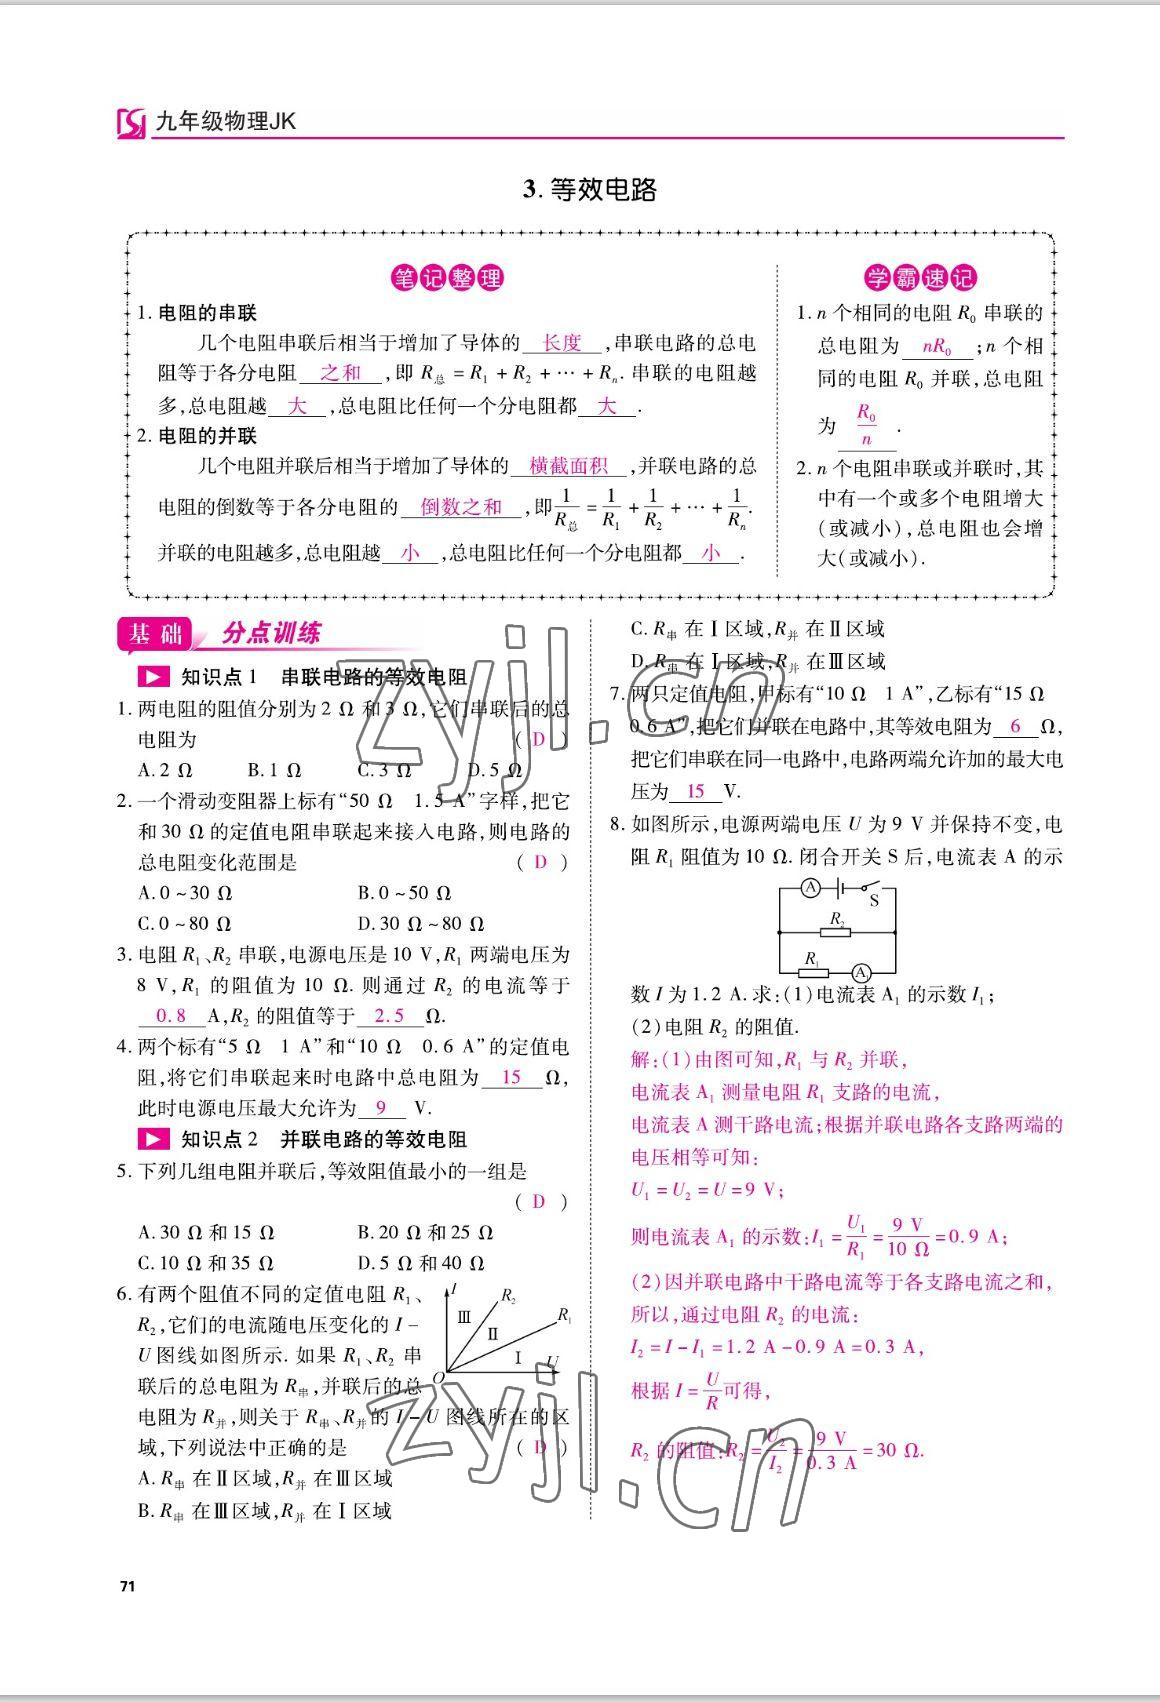 九年级物理JK
3. 等效电路
笔记整理
1. 电阻的串联
几个电阻串联后相当于增加了导体的 长度 ,串联电路的总电
阻等于各分电阻 之和 ,即 R总 = R₁ + R₂ + ⋯ + Rₙ. 串联的电阻越
多,总电阻越 大 ,总电阻比任何一个分电阻都 大 .
2. 电阻的并联
几个电阻并联后相当于增加了导体的 横截面积 ,并联电路的总
电阻的倒数等于各分电阻的 倒数之和 ,即 1/R总 = 1/R₁ + 1/R₂ + ⋯ + 1/Rₙ.
并联的电阻越多,总电阻越 小 ,总电阻比任何一个分电阻都 小 .
学霸速记
1. n 个相同的电阻 R₀ 串联的
总电阻为 nR₀ ;n 个相
同的电阻 R₀ 并联,总电阻
为 R₀/n .
2. n 个电阻串联或并联时,其
中有一个或多个电阻增大
(或减小),总电阻也会增
大(或减小).
基础 分点训练
知识点1 串联电路的等效电阻
1. 两电阻的阻值分别为 2 Ω 和 3 Ω,它们串联后的总
电阻为 ( D )
A. 2 Ω B. 1 Ω C. 3 Ω D. 5 Ω
2. 一个滑动变阻器上标有“50 Ω 1.5 A”字样,把它
和 30 Ω 的定值电阻串联起来接入电路,则电路的
总电阻变化范围是 ( D )
A. 0 ~ 30 Ω B. 0 ~ 50 Ω
C. 0 ~ 80 Ω D. 30 Ω ~ 80 Ω
3. 电阻 R₁、R₂ 串联,电源电压是 10 V,R₁ 两端电压为
8 V,R₁ 的阻值为 10 Ω. 则通过 R₂ 的电流等于
0.8 A,R₂ 的阻值等于 2.5 Ω.
4. 两个标有“5 Ω 1 A”和“10 Ω 0.6 A”的定值电
阻,将它们串联起来时电路中总电阻为 15 Ω,
此时电源电压最大允许为 9 V.
知识点2 并联电路的等效电阻
5. 下列几组电阻并联后,等效阻值最小的一组是
( D )
A. 30 Ω 和 15 Ω B. 20 Ω 和 25 Ω
C. 10 Ω 和 35 Ω D. 5 Ω 和 40 Ω
6. 有两个阻值不同的定值电阻 R₁、
R₂,它们的电流随电压变化的 I -
U 图线如图所示. 如果 R₁、R₂ 串
联后的总电阻为 R串,并联后的总
电阻为 R并,则关于 R串、R并的 I - U 图线所在的区
域,下列说法中正确的是 ( D )
I R₂ R₁ Ⅲ Ⅱ Ⅰ U O
A. R串 在Ⅱ区域,R并 在Ⅲ区域
B. R串 在Ⅲ区域,R并 在Ⅰ区域
C. R串 在Ⅰ区域,R并 在Ⅱ区域
D. R串 在Ⅰ区域,R并 在Ⅲ区域
7. 两只定值电阻,甲标有“10 Ω 1 A”,乙标有“15 Ω
0.6 A”,把它们并联在电路中,其等效电阻为 6 Ω,
把它们串联在同一电路中,电路两端允许加的最大电
压为 15 V.
8. 如图所示,电源两端电压 U 为 9 V 并保持不变,电
阻 R₁ 阻值为 10 Ω. 闭合开关 S 后,电流表 A 的示
A S
R₂
R₁ A₁
数 I 为 1.2 A. 求:(1)电流表 A₁ 的示数 I₁;
(2)电阻 R₂ 的阻值.
解:(1)由图可知,R₁ 与 R₂ 并联,
电流表 A₁ 测量电阻 R₁ 支路的电流,
电流表 A 测干路电流;根据并联电路各支路两端的
电压相等可知:
U₁ = U₂ = U = 9 V;
则电流表 A₁ 的示数:I₁ = U₁/R₁ = 9 V/10 Ω = 0.9 A;
(2)因并联电路中干路电流等于各支路电流之和,
所以,通过电阻 R₂ 的电流:
I₂ = I - I₁ = 1.2 A - 0.9 A = 0.3 A,
根据 I = U/R 可得,
R₂ 的阻值:R₂ = U₂/I₂ = 9 V/0.3 A = 30 Ω.
zyjl.cn
zyjl.cn
71